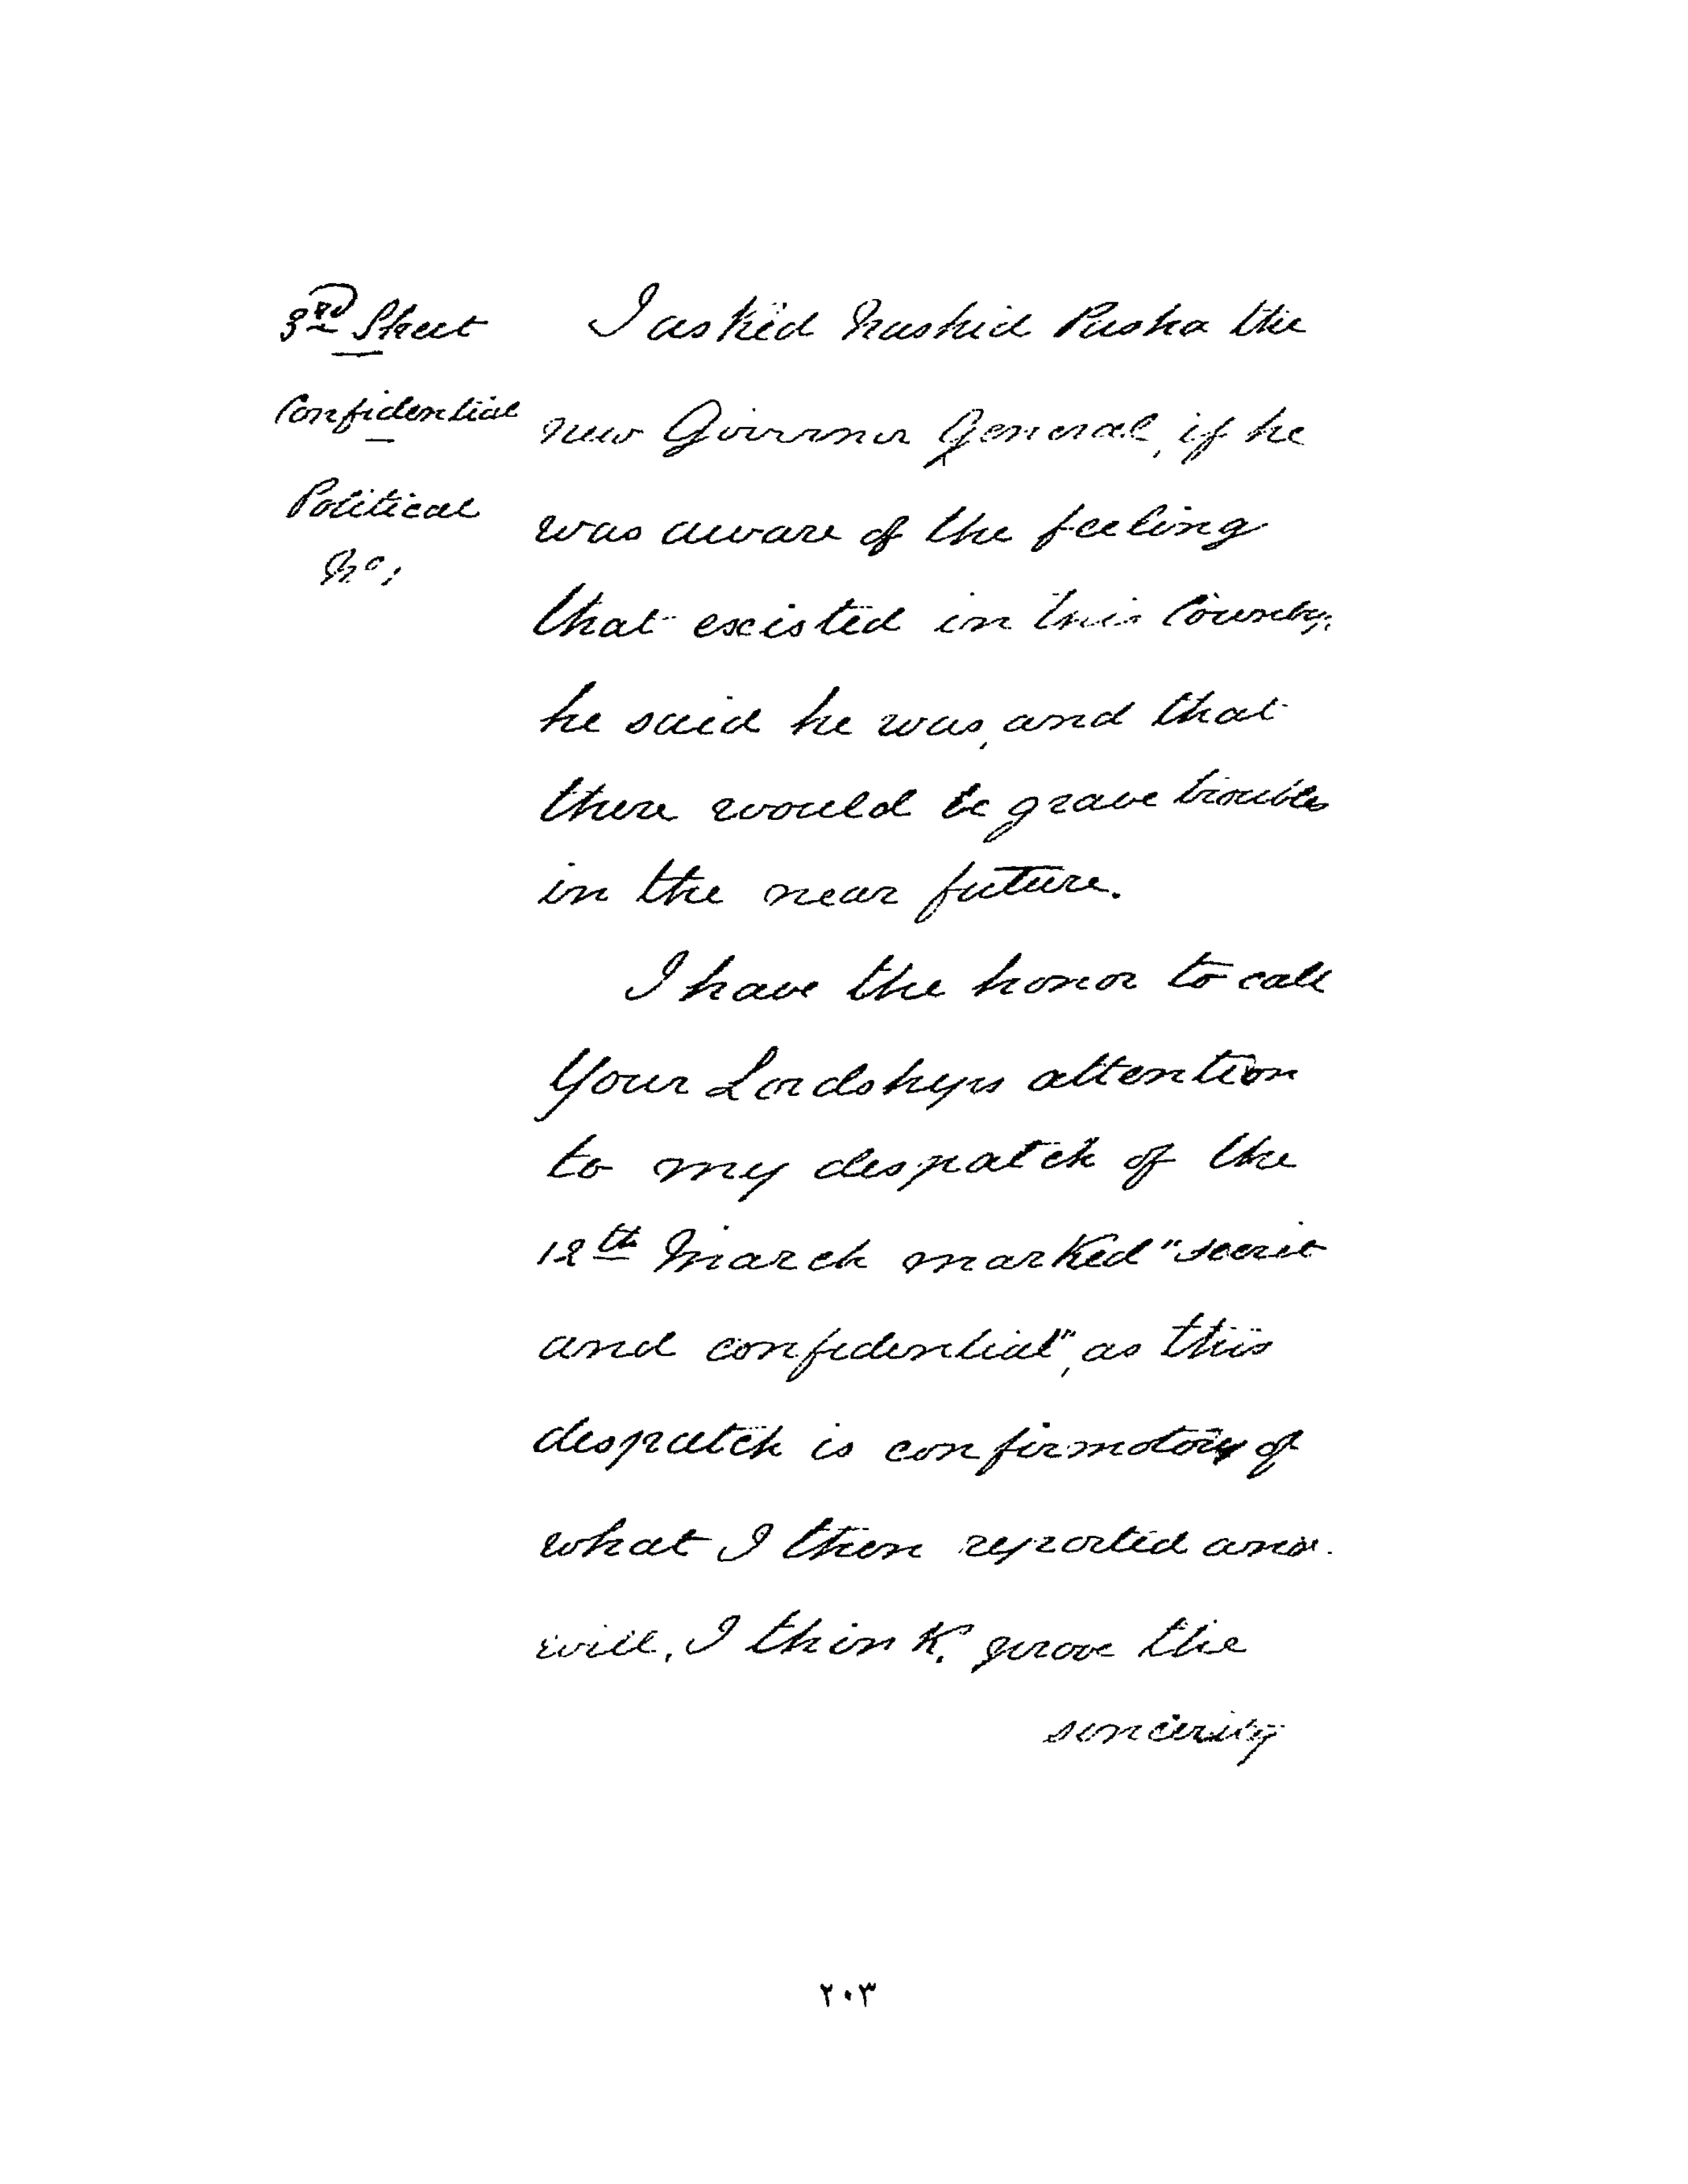 3rd Sheet
Confidential
Political
No 1
I asked Nashid Pasha the
new Governor General, if he
was aware of the feeling
that existed in this Country,
he said he was, and that
there would be grave troubles
in the near future.
I have the honor to call
Your Lordships attention
to my despatch of the
12th March marked "secret
and confidential", as this
despatch is confirmatory of
what I then reported and
will, I think, prove the
sincerity
٢٠٣